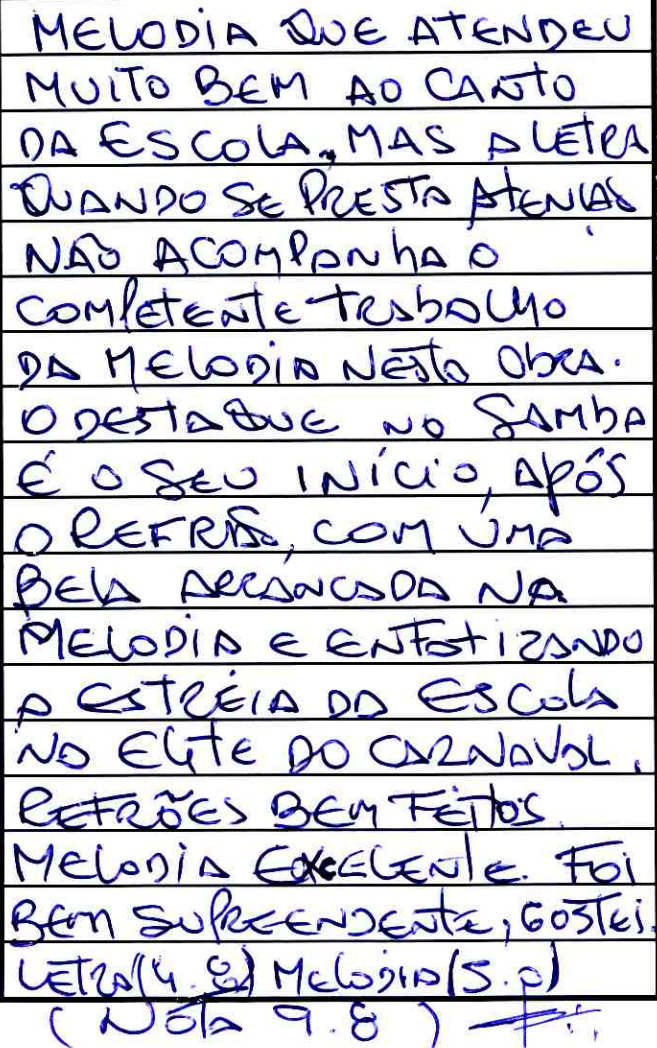 MELODIA QUE ATENDEU
MUITO BEM AO CANTO
DA ESCOLA, MAS A LETRA
QUANDO SE PRESTA ATENÇÃO
NÃO ACOMPANHA O
COMPETENTE TRABALHO
DA MELODIA NESTA OBRA.
O DESTAQUE NO SAMBA
É O SEU INÍCIO, APÓS
O REFRÃO, COM UMA
BELA ARRANCADA NA
MELODIA E ENFATIZANDO
A ESTRÉIA DA ESCOLA
NA ELITE DO CARNAVAL.
REFRÕES BEM FEITOS.
MELODIA EXCELENTE. FOI
BEM SUPREENDENTE, GOSTEI.
LETRA (4.8) MELODIA (5.0)
(NOTA 9.8)